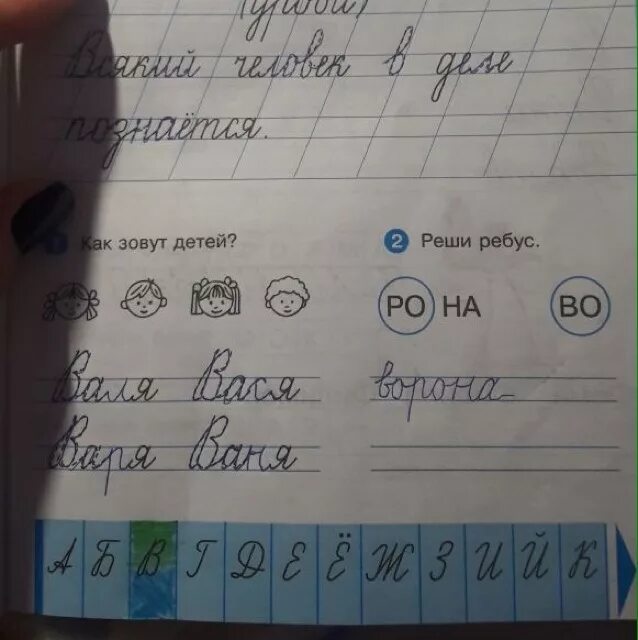 (уговой)
Всякий человек в деле
познаётся.
1 Как зовут детей?
Валя Вася
Варя Ваня
2 Реши ребус.
РО НА ВО
ворона
А Б В Г Д Е Ё Ж З И Й К